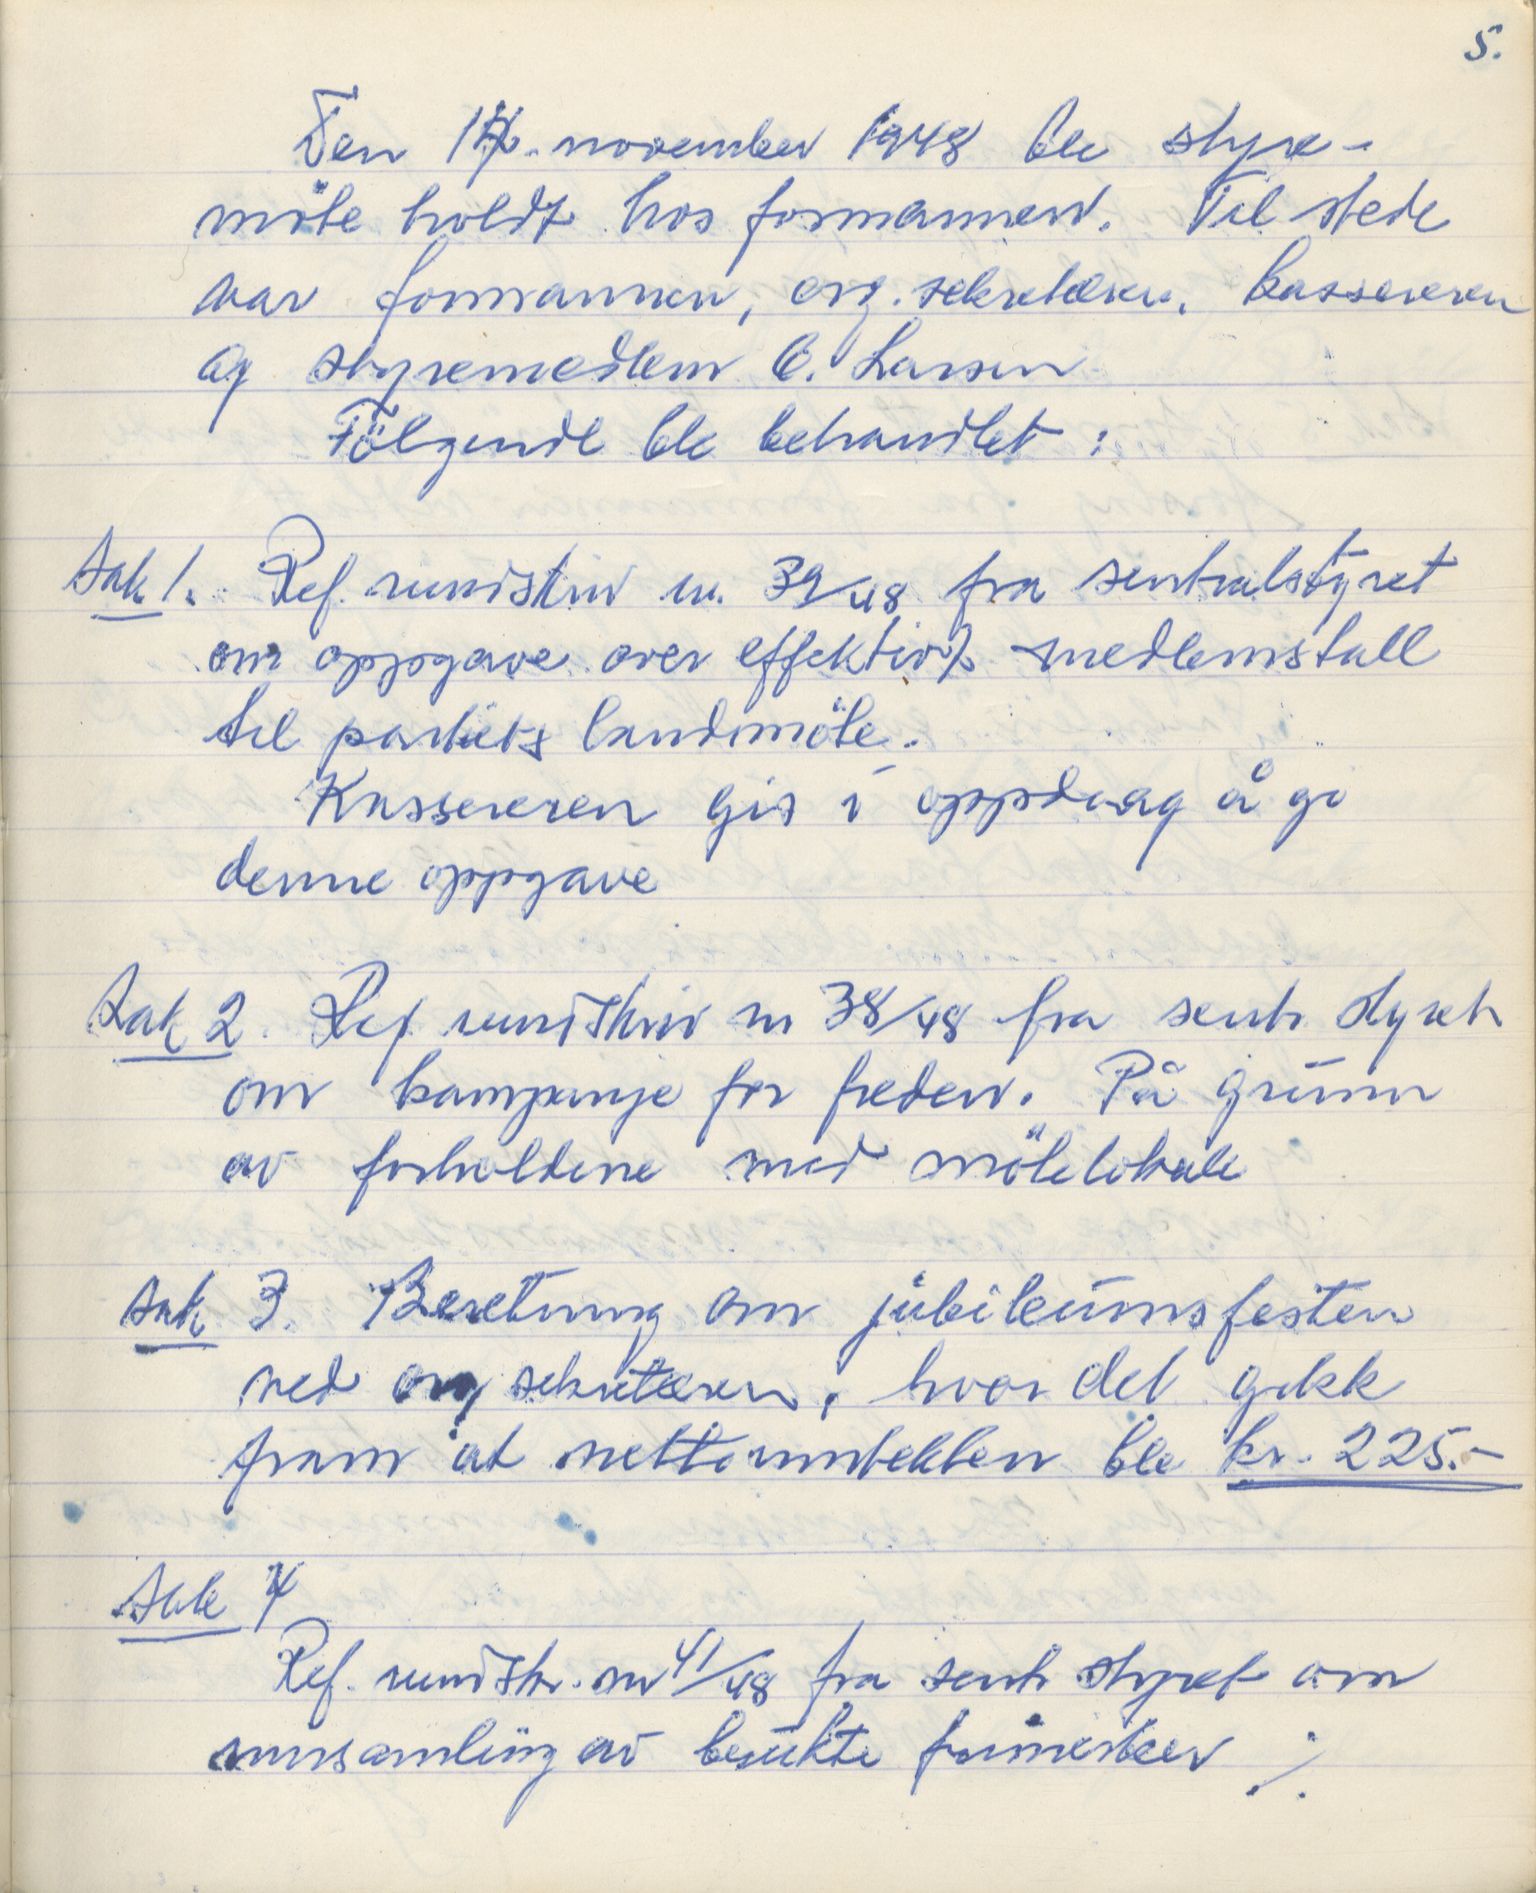 5.
Den 17. november 1948 ble styre-
möte holdt hos formannen. Til stede
var formannen, org. sekretæren, kassereren
og styremedlem C. Larsen
Fölgende ble behandlet :
Sak 1. Ref. rundskriv nr. 39/48 fra sentralstyret
om oppgave over effektivt medlemstall
til partiets landsmöte.
Kassereren gis i oppdrag å gi
denne oppgave
Sak 2. Ref rundskriv nr 38/48 fra sentr styret
om kampanje for freden. På grunn
av forholdene med mötelokale
Sak 3. Beretning om jubileumsfesten
ved org sekretæren, hvor det gikk
fram at nettoinntekten ble kr. 225.-
Sak 4
Ref. rundskr. nr 41/48 fra sentr styret om
innsamling av brukte frimerker ./.